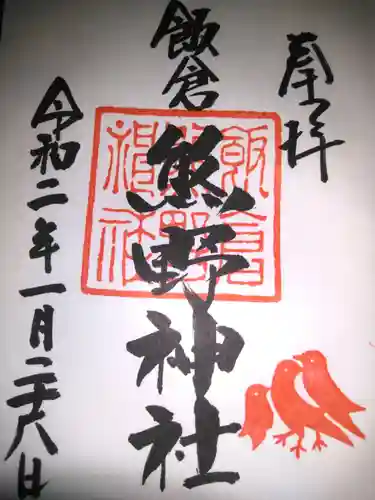 奉拝
飯倉
熊野神社
令和二年一月二十八日
飯倉
熊野
神社